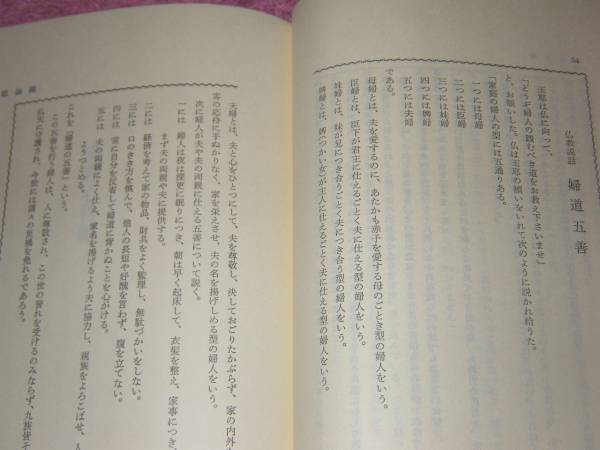 54
仏教説話 婦道五善
玉耶は仏に向って、
「どうぞ婦人の践むべき道をお教え下さいませ」
と、お願いした。仏は玉耶の願いをいれて次のように説かれ給うた。
「家裳の婦人の型には五通りある。
一つには母婦
二つには臣婦
三つには妹婦
四つには婢婦
五つには夫婦
である。
母婦とは、夫を愛するのに、あたかも赤子を愛する母のごとき型の婦人をいう。
臣婦とは、臣下が君主に仕えるごとく夫に仕える型の婦人をいう。
妹婦とは、妹が兄につき合うごとく夫につき合う型の婦人をいう。
婢婦とは、婢(つかい女)が主人に仕えるごとく夫に仕える型の婦人をいう。
夫婦とは、夫と心をひとつにして、夫を尊敬し、決しておごりたかぶらず、家の内外
客の応待に手ぬかりなく、家を栄えさせ、夫の名を揚げしめる型の婦人をいう。
次に婦人が夫や夫の両親に仕える五善について説く。
一には 婦人は夜は深更に眠りにつき、朝は早く起床して、衣髪を整え、家事につき、
まず夫の両親や夫に提供する。
二には 経済を考えて家の物品、財具をよく監理し、無駄づかいをしない。
三には 口のきき方を慎んで、他人の長短や好醜を言わず、腹を立てない。
四には 常に自分を反省して婦道に背かぬことを心がける。
五には 夫の両親によく仕え、家名を揚げるよう夫に協力し、親族をよろこばせ、人
ようつとめる。
これを「婦道の五善」という。
この五善を行う婦人は、人に尊敬され、この世の誉れを受けるのみならず、九族皆そ
仏天に守護され、今世には諸々の災禍を免れるであろう。